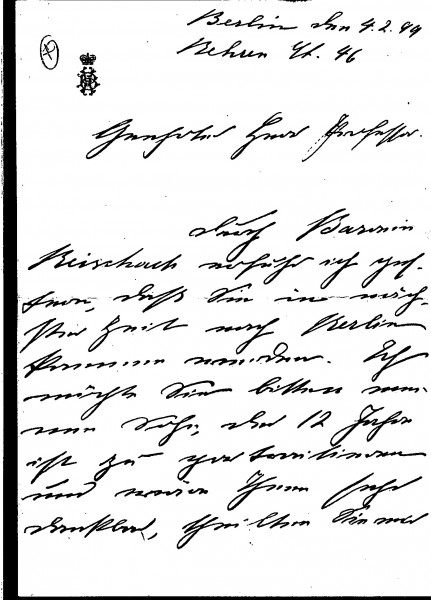 Berlin den 4.2.99
Behren St. 46
Geehrter Herr Professor.
durch Baronin
Reischach erfuhr ich ges-
tern, daß Sie in näch-
ster Zeit nach Berlin
kommen werden. Ich
möchte Sie bitten mei-
nen Sohn, der 12 Jahre
ist zu
und wäre Ihnen sehr
dankbar, theilten Sie mir